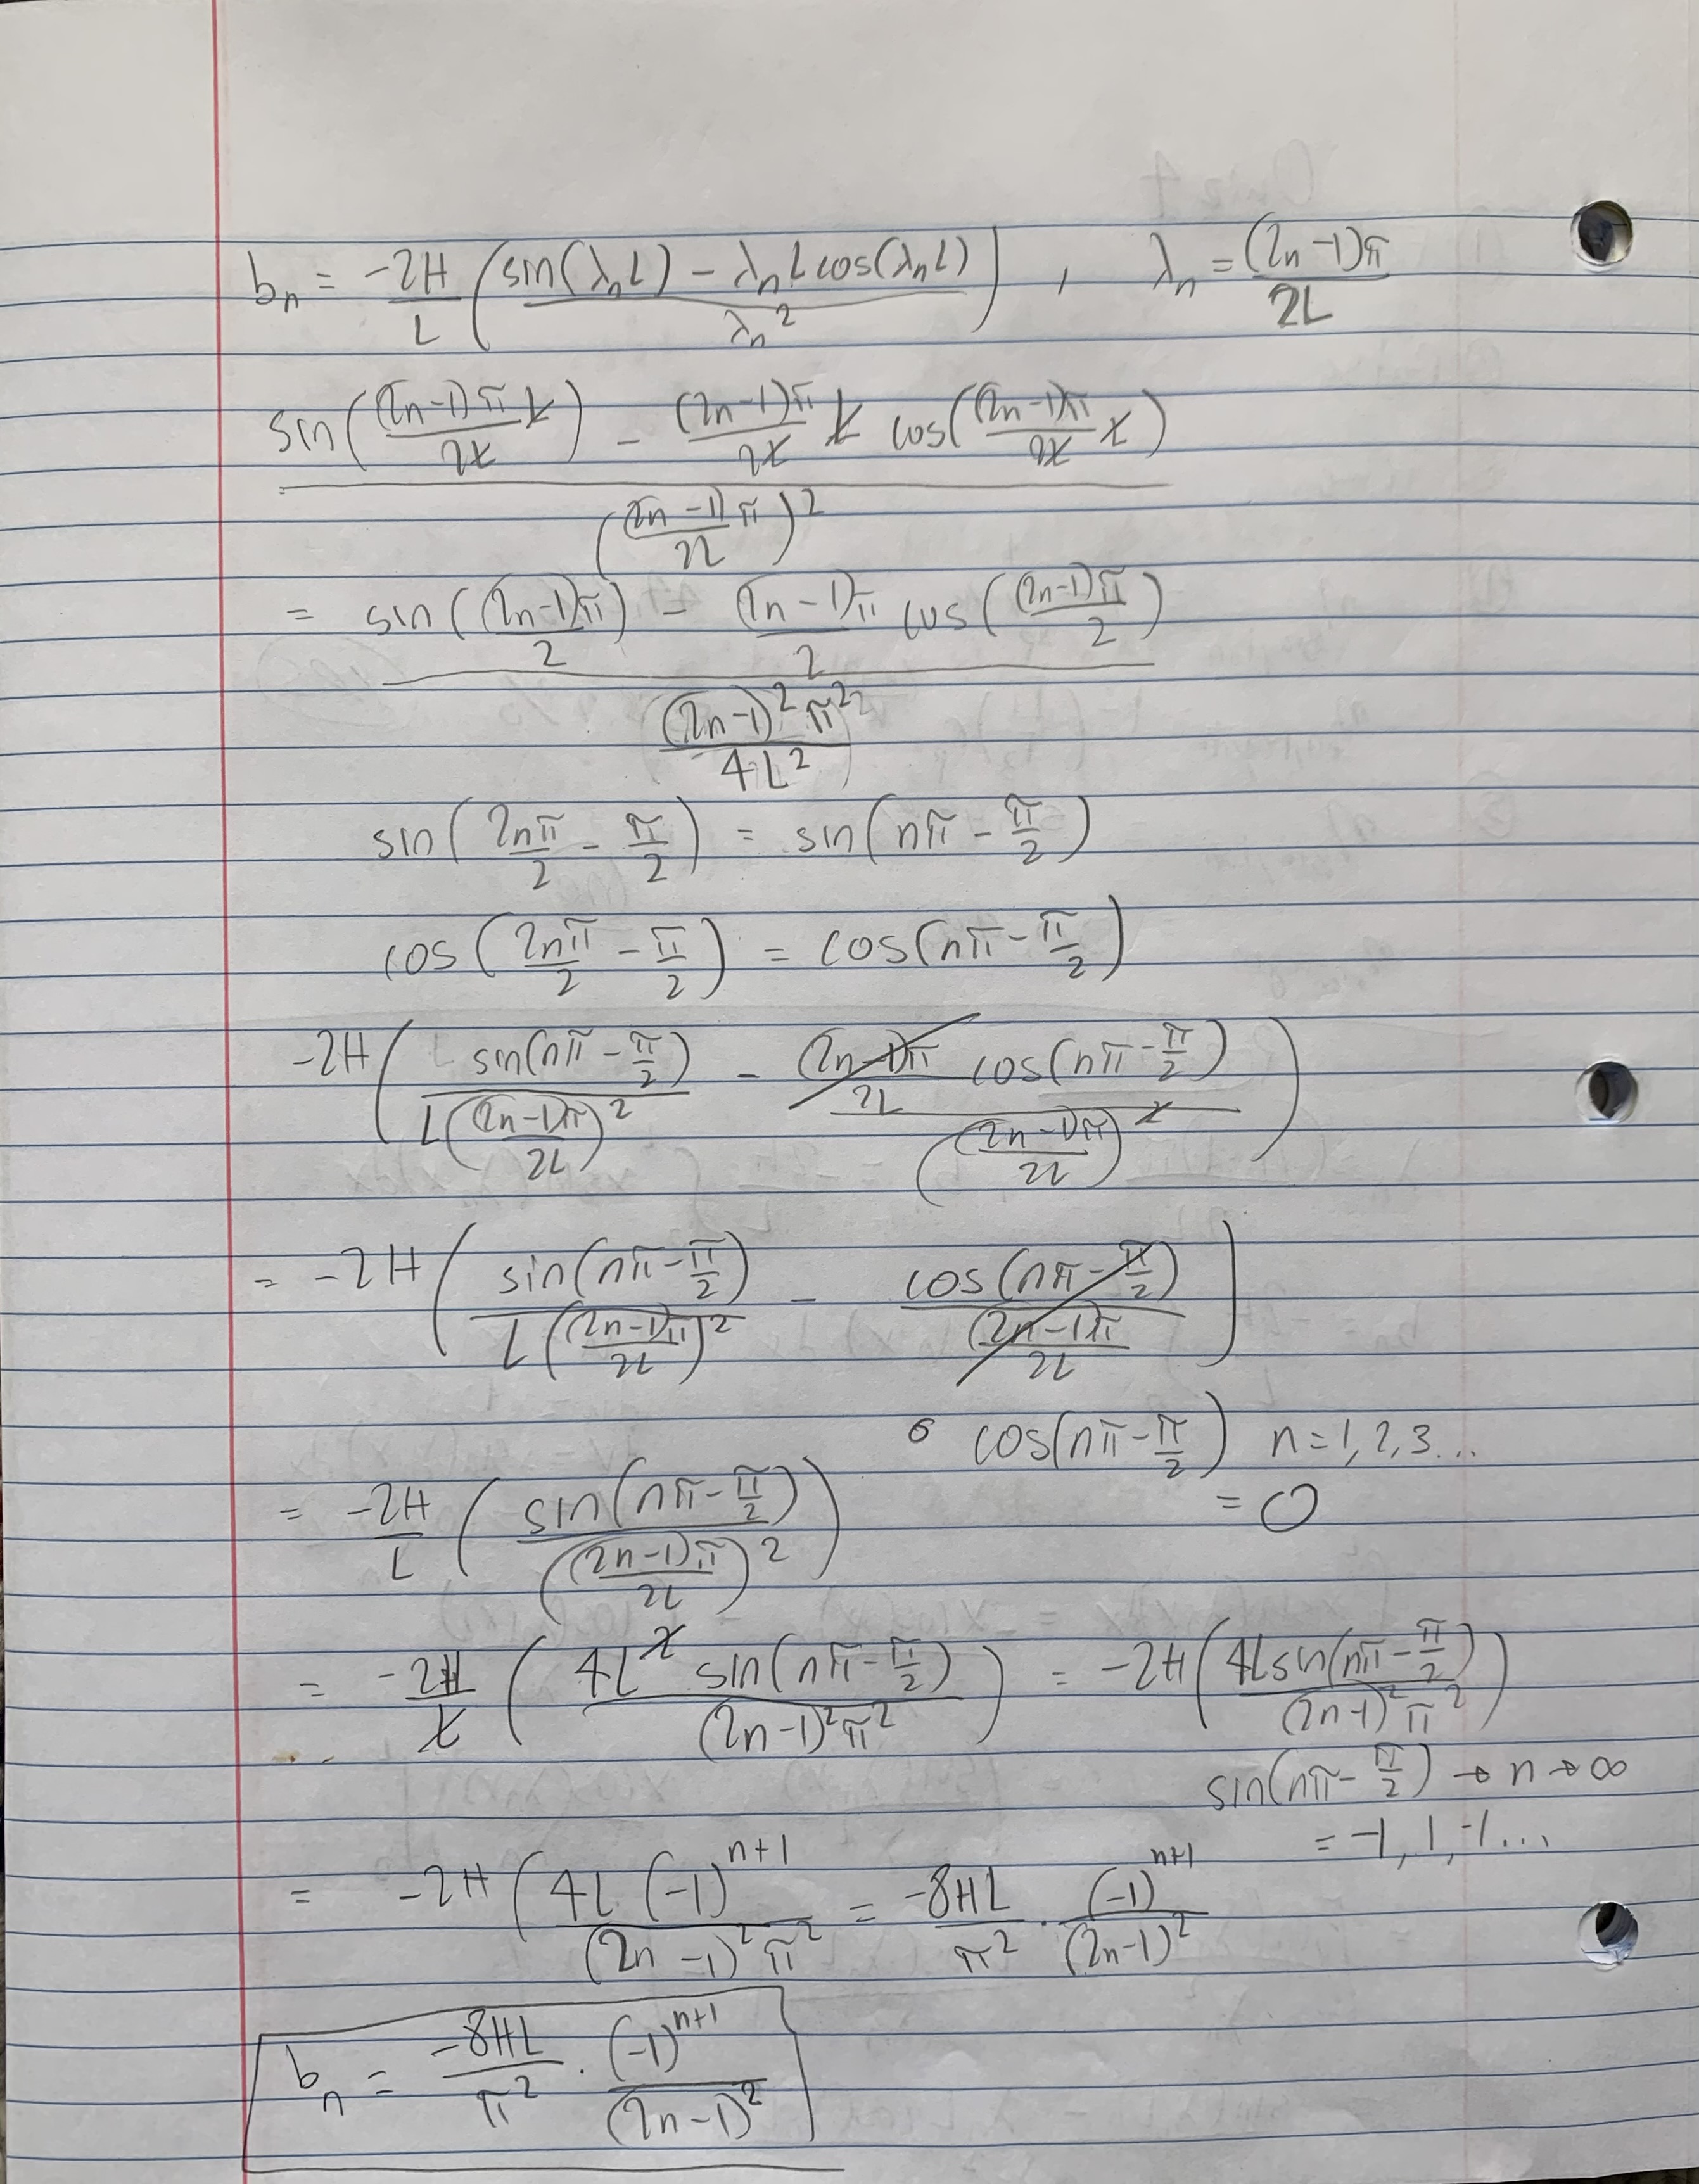 b_n = -2H/L ( (sin(λ_n L) - λ_n L cos(λ_n L)) / λ_n^2 ) , λ_n = (2n-1)π / 2L
( sin( (2n-1)π/2L L ) - (2n-1)π/2L L cos( (2n-1)π/2L L ) ) / ( (2n-1)π/2L )^2
= ( sin( (2n-1)π/2 ) - (2n-1)π/2 cos( (2n-1)π/2 ) ) / ( (2n-1)^2 π^2 / 4L^2 )
sin( 2nπ/2 - π/2 ) = sin( nπ - π/2 )
cos( 2nπ/2 - π/2 ) = cos( nπ - π/2 )
-2H ( sin(nπ - π/2) / L( (2n-1)π/2L )^2 - (2n-1)π/2L cos(nπ - π/2) / ( (2n-1)π/2L )^2 )
= -2H ( sin(nπ - π/2) / L( (2n-1)π/2L )^2 - cos(nπ - π/2) / ( (2n-1)π/2L ) )
cos(nπ - π/2) n = 1, 2, 3...
= 0
= -2H/L ( sin(nπ - π/2) / ( (2n-1)π/2L )^2 )
= -2H/L ( 4L^2 sin(nπ - π/2) / (2n-1)^2 π^2 ) = -2H ( 4L sin(nπ - π/2) / (2n-1)^2 π^2 )
sin(nπ - π/2) → n → ∞
= -1, 1, -1...
= -2H ( 4L (-1)^{n+1} / (2n-1)^2 π^2 = -8HL/π^2 · (-1)^{n+1} / (2n-1)^2
b_n = -8HL/π^2 · (-1)^{n+1} / (2n-1)^2